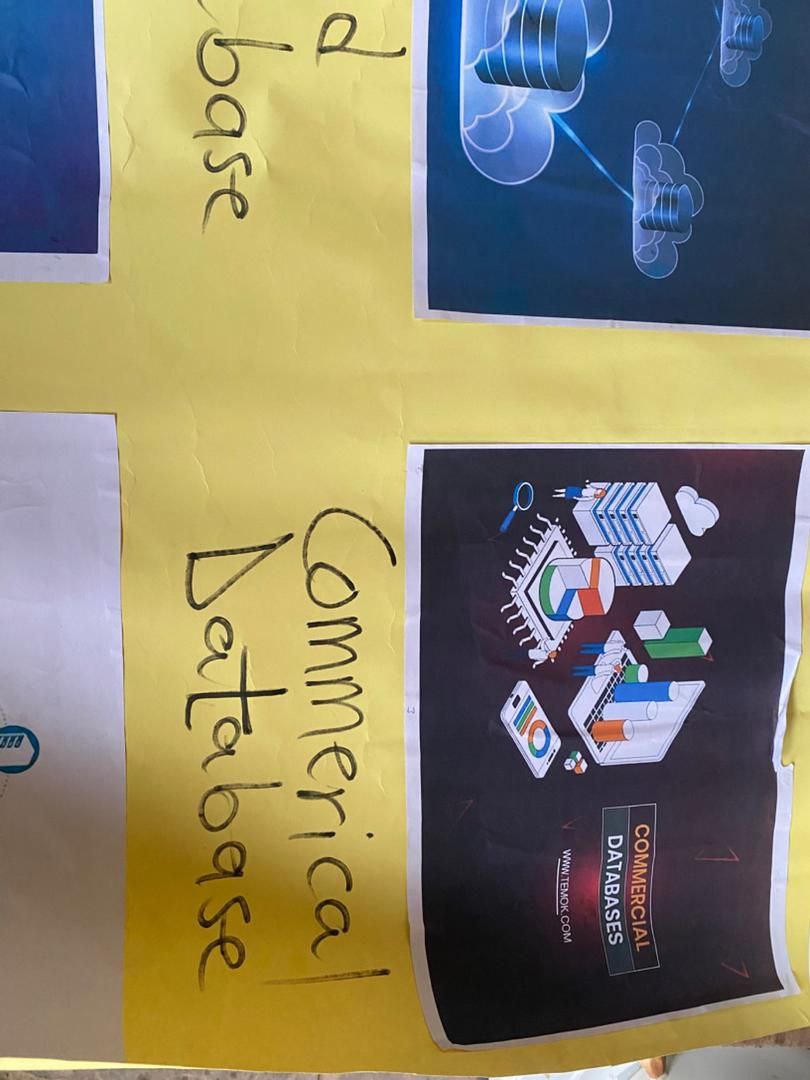 COMMERCIAL
DATABASES
WWW.TEMOK.COM
d
base
Commerical
Database